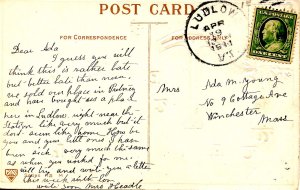 POST CARD
FOR CORRESPONDENCE
FOR ADDRESS ONLY
LUDLOW
APR
29
1911
Dear Ida
I guess you will
think this is rather late
but better late than never.
we sold our place in Putney
and have bought us a place
here in Ludlow, right near the
Station. like very much but it
dont seem like home. How be
you and your little one? I have
been sick, very much this same
as when you worked for me. I
will try and write you a letter
this week with love
write soon Mrs Headle
Mrs Ida M. Young
No 9 Cottage Ave
Winchester
Mass